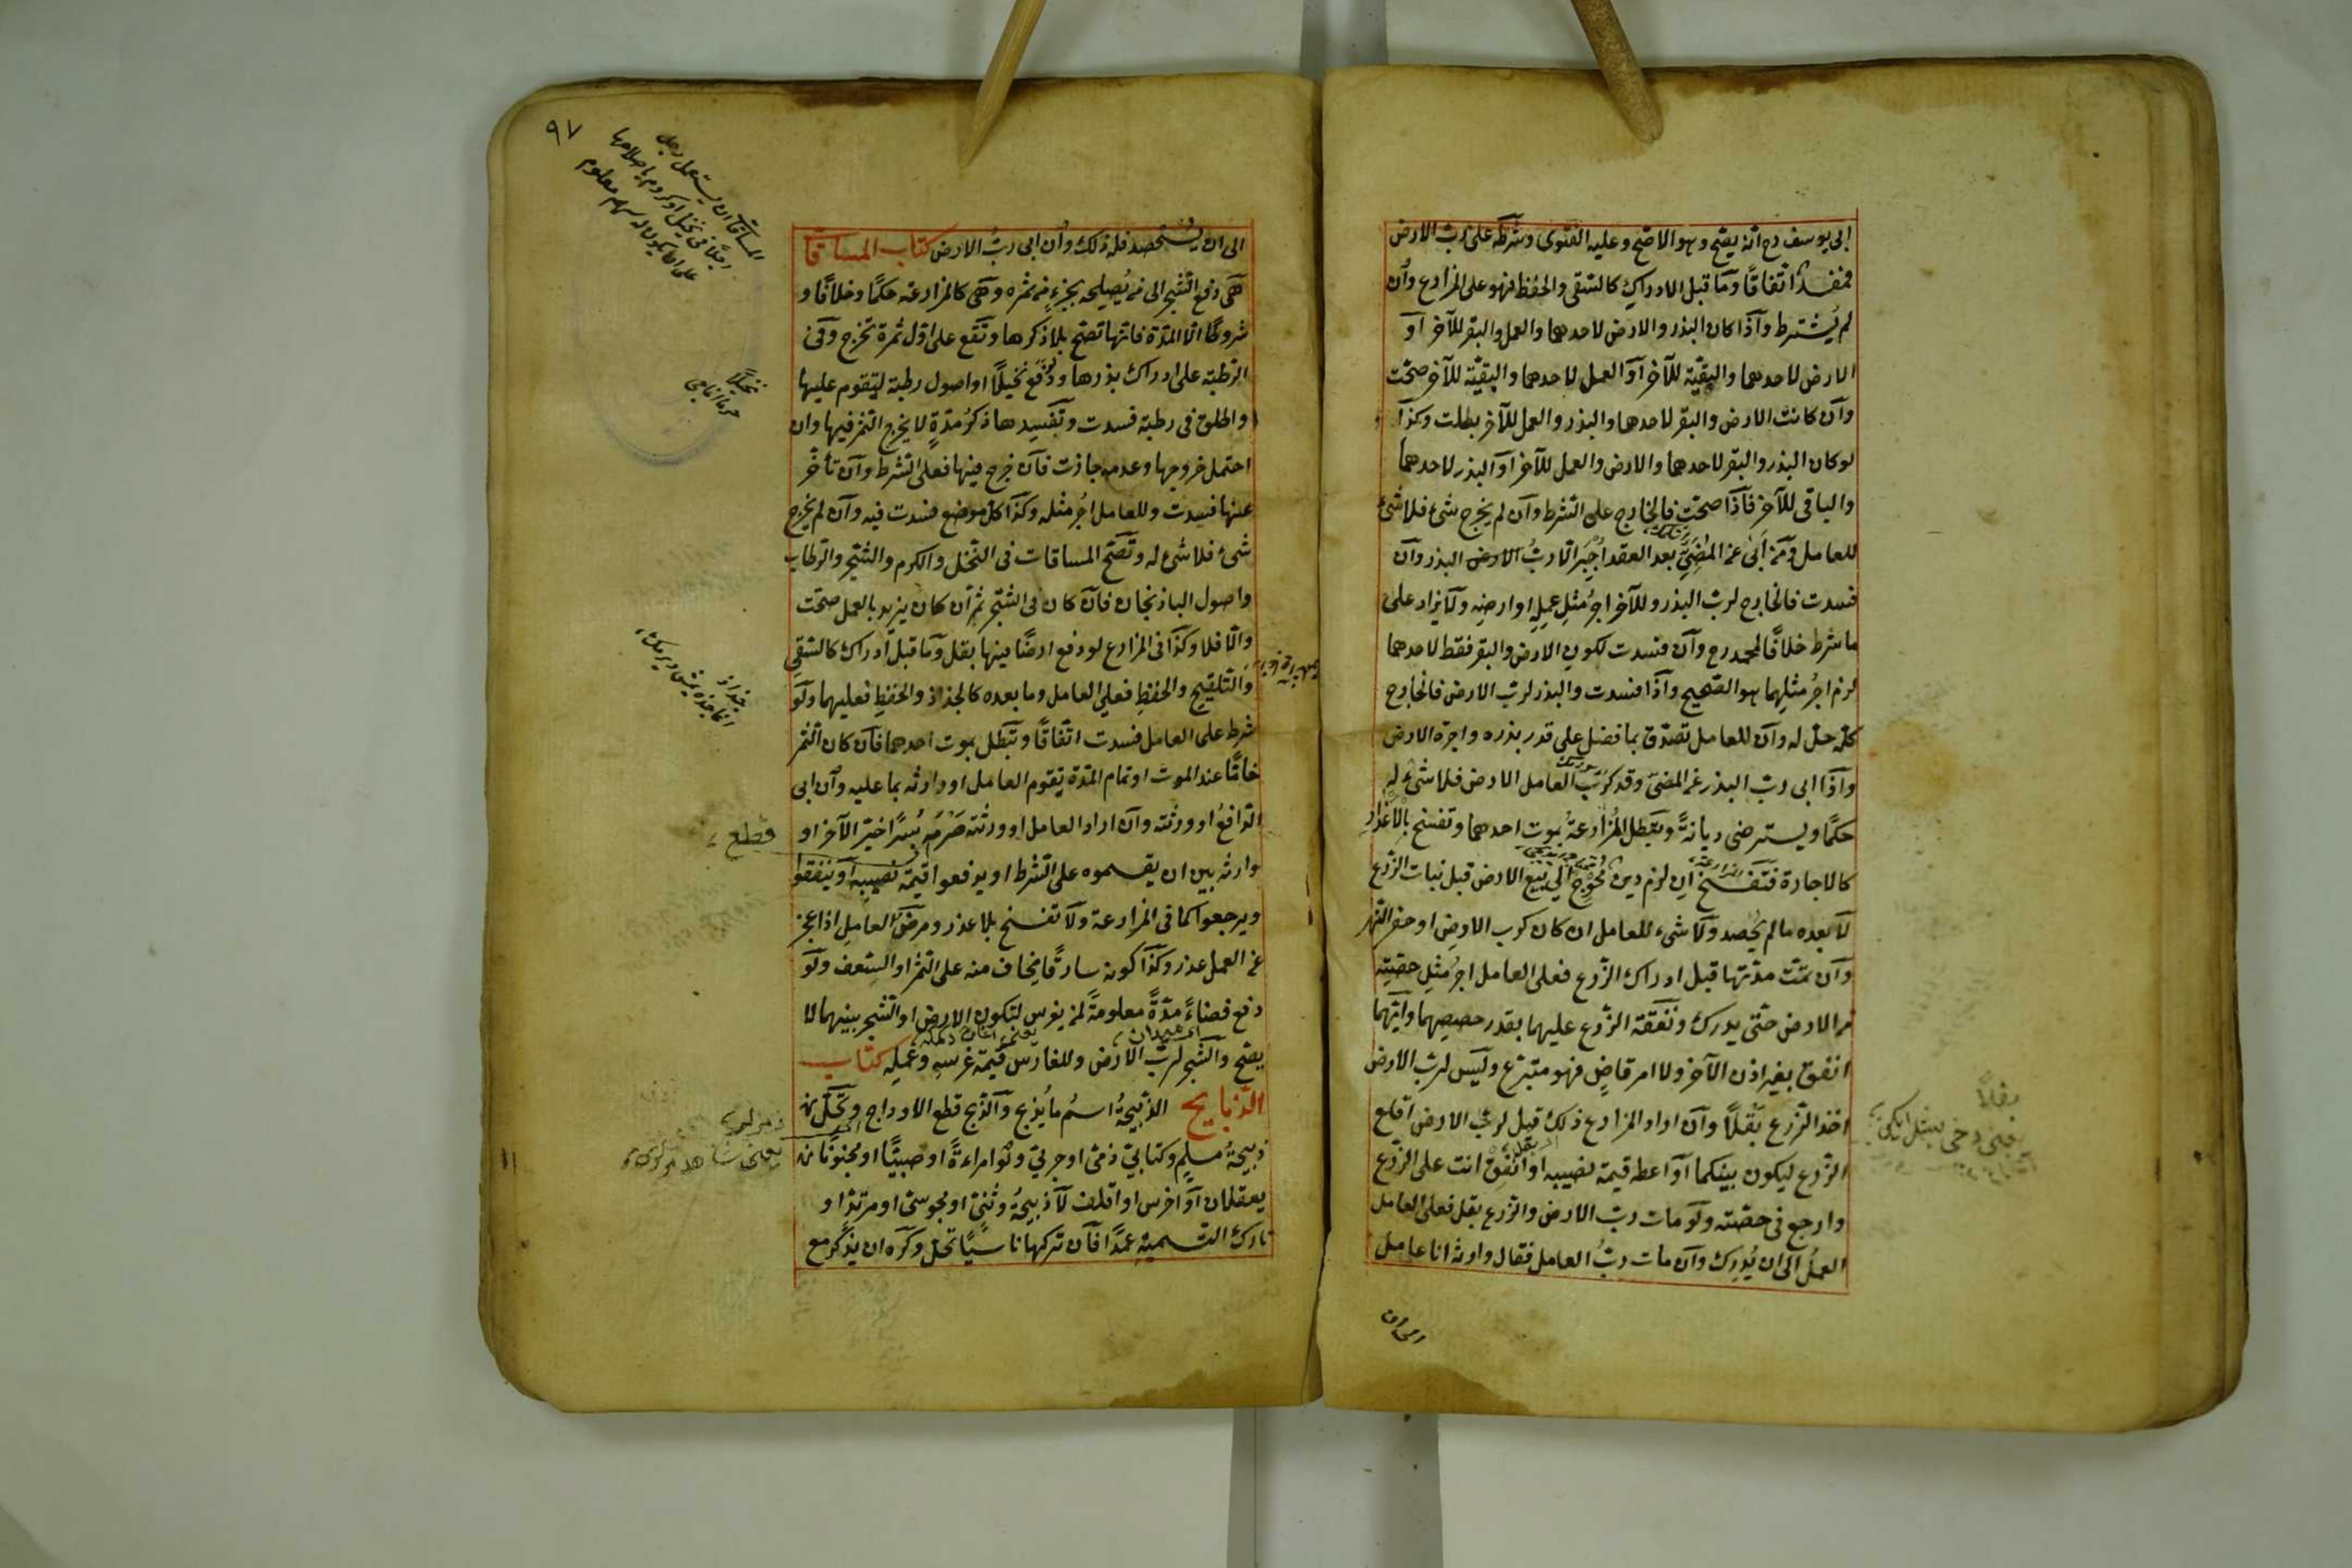 ابى يوسف رح انه يصح وهو الاصح وعليه الفتوى وشرطه على رب الارض
مفسد اتفاقا وما قبل الادراك كالسقى والحفظ فهو على المزارع وان
لم يشترط واذا كان البذر والارض لاحدهما والعمل والبقر للآخر او
الارض لاحدهما والبقية للآخر او العمل لاحدهما والبقية للآخر صحت
وان كانت الارض والبقر لاحدهما والبذر والعمل للآخر بطلت وكذا
لو كان البذر والبقر لاحدهما والارض والعمل للآخر او البذر لاحدهما
والباقى للآخر فاذا صحت فالخارج على الشرط وان لم يخرج شئ فلا شئ
للعامل ومن ابى عن المضى بعد العقد اجبر الا رب الارض البذر وان
فسدت فالخارج لرب البذر وللآخر اجر مثل عمله او ارضه ولا يزاد على
ما شرط خلافا لمحمد رح وان فسدت لكون الارض والبقر فقط لاحدهما
لزم اجر مثلهما هو الصحيح واذا فسدت والبذر لرب الارض فالخارج
كله حل له وان للعامل تصدق بما فضل على قدر بذره واجرة الارض
واذا ابى رب البذر عن المضى وقد كرب العامل الارض فلا شئ له
حكما ويسترضى ديانة وتبطل المزارعة بموت احدهما وتفسخ بالاعذار
كالاجارة فتفسخ ان لزم دين محوج الى بيع الارض قبل نبات الزرع
لا بعده ما لم يحصد ولا شىء للعامل ان كان كرب الارض او حفر النهر
وان تمت مدتها قبل ادراك الزرع فعلى العامل اجر مثل حصته
من الارض حتى يدرك ونفقة الزرع عليهما بقدر حصصهما وايهما
انفق بغير اذن الآخر ولا امر قاض فهو متبرع وليس لرب الارض
اخذ الزرع بقلا وان اراد المزارع ذلك قيل لرب الارض اقلع
الزرع ليكون بينكما او اعطه قيمة نصيبه او انفق انت على الزرع
وارجع فى حصته ولو مات رب الارض والزرع بقل فعلى العامل
العمل الى ان يدرك وان مات رب العامل فقال وارثه انا عامل
الى ان
بقلا
٩٧
المساقات ان يستعمل رجل
رجلا فى نخيل او كروم باصلاحها
على ان يكون له سهم معلوم
الى ان يستحصد فله ذلك وان ابى رب الارض كتاب المساقا
هى دفع الشجر الى من يصلحه بجزء من ثمره وهى كالمزارعة حكما وخلافا و
شروطا الا المدة فانها تصح بلا ذكرها وتقع على اول ثمرة تخرج وفى
الرطبة على ادراك بذرها ودفع نخيلا او اصول رطبة ليقوم عليها
واطلق فى رطبة فسدت وتفسدها ذكر مدة لا يخرج الثمر فيها وان
احتمل خروجها وعدمه جازت فان خرج فيها فعلى الشرط وان تأخر
عنها فسدت وللعامل اجر مثله وكذا كل موضع فسدت فيه وان لم يخرج
شئ فلا شئ له وتصح المساقات فى النخل والكرم والشجر والرطاب
واصول الباذنجان فان كان فى الشجر ثمر ان كان يزيد بالعمل صحت
والا فلا وكذا فى المزارع لو دفع ارضا فيها بقل وما قبل ادراك كالسقى
والتلقيح والحفظ فعلى العامل وما بعده كالجذاذ والحفظ فعليهما ولو
شرط على العامل فسدت اتفاقا وتبطل بموت احدهما فان كان الثمر
خاما عند الموت او تمام المدة يقوم العامل او وارثه بما عليه وان ابى
الدافع او ورثته وان اراد العامل او ورثته صرمه بسرا خير الآخر او
وارثه بين ان يقسموه على الشرط او يدفعوا قيمة نصيبه او ينفقوا
ويرجعوا كما فى المزارعة ولا تفسخ بلا عذر ومرض العامل اذا عجز
عن العمل عذر وكذا كونه سارقا يخاف منه على الثمر او السعف ولو
دفع فضاء مدة معلومة لمن يغرس لتكون الارض او الشجر بينهما لا
يصح والشجر لرب الارض وللغارس قيمة غرسه وعمله كتاب
الذبايح الذبيحة اسم ما يذبح والذبح قطع الاوداج وتحل من
ذبيحة مسلم وكتابى ذمى او حربى ولو امراءة او صبيا او مجنونا
يعقلان او اخرس او اقلف لا ذبيحة وثنى او مجوسى او مرتد او
تارك التسمية عمدا فان تركها ناسيا تحل وكره ان يذكر مع
نخيلا
خرما اغاجى
جذاذ
قطع